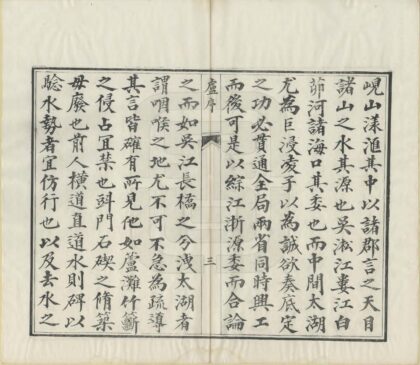 峴山漾滙其中以諸郡言之天目
諸山之水其源也吳淞江婁江白
茆河諸海口其委也而中間太湖
尤為巨浸淩予以為誠欲奏底定
之功必貫通全局兩省同時興工
而後可是以綜江浙源委而合論
盧序
三
之而如吳江長橋之分洩太湖者
謂咽喉之地尤不可不急為疏導
其言皆確有所見他如蘆灘竹籪
之侵占宜禁也㪷門石礙之脩築
毋廢也前人橫道直道水則碑以
騐水勢者宜仿行也以及去水之